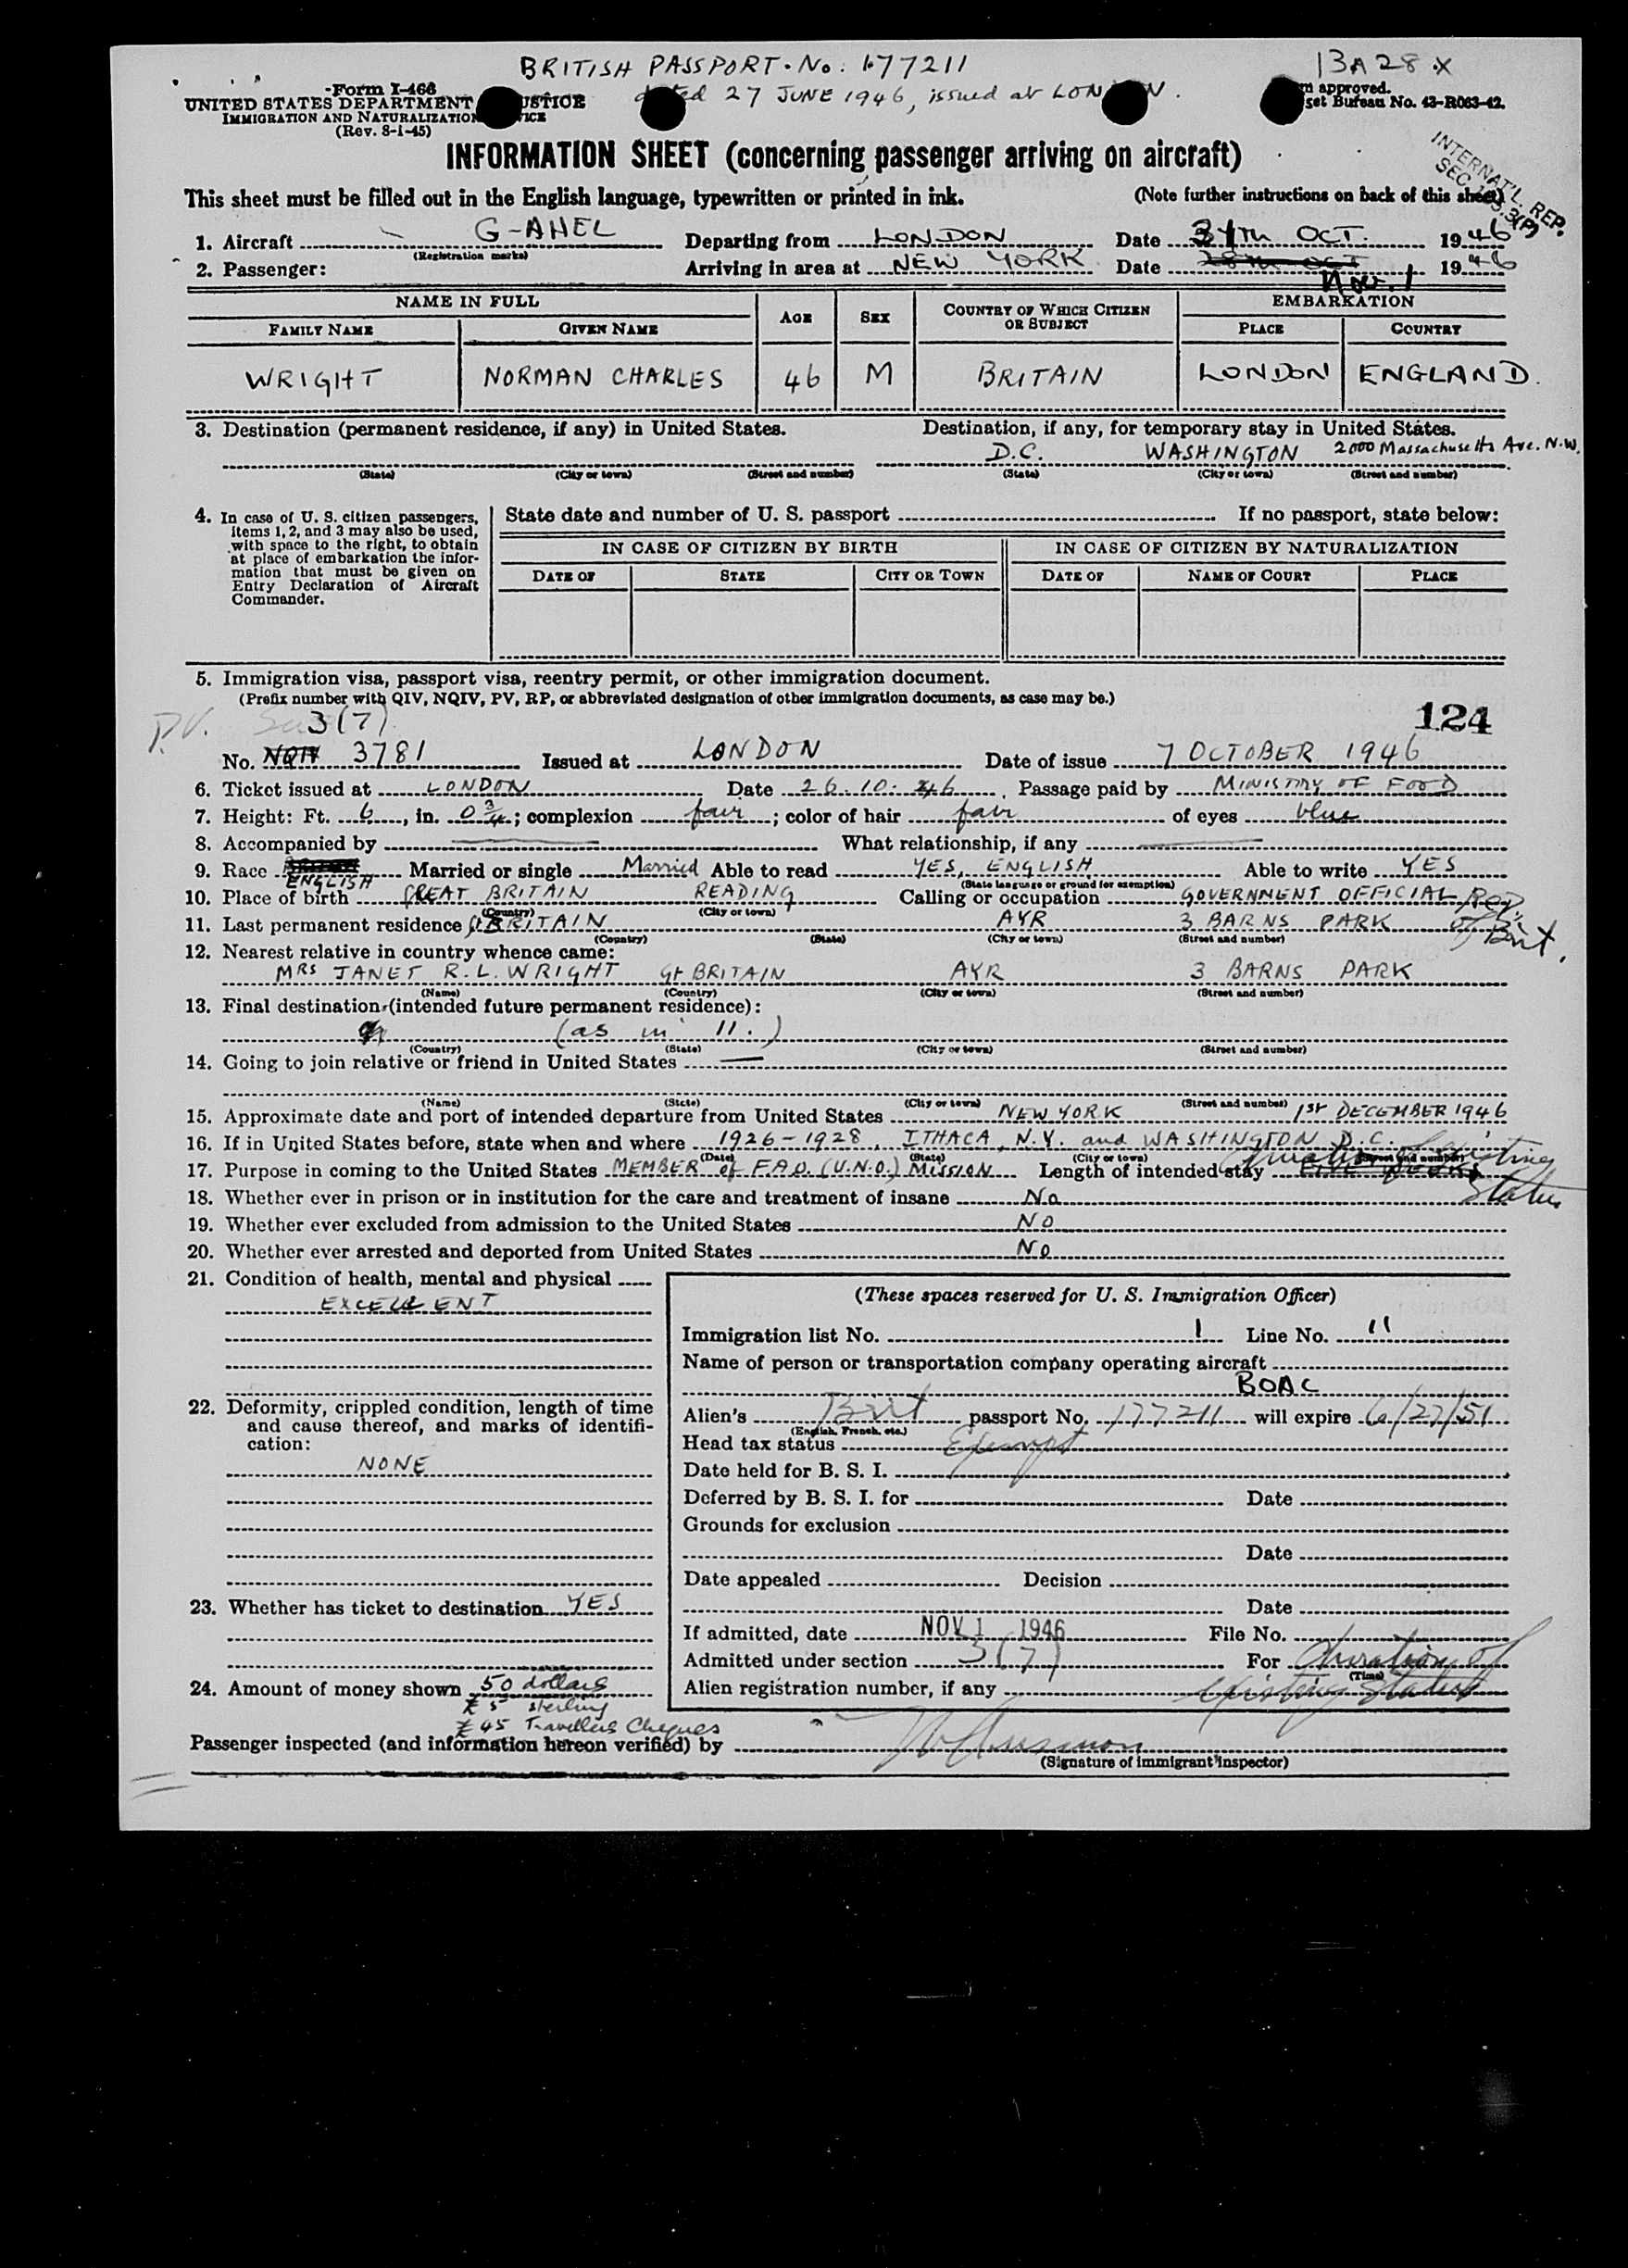 BRITISH PASSPORT. No. 177211
13A28 X
Form I-466
UNITED STATES DEPARTMENT JUSTICE
dated 27 JUNE 1946, issued at LONDON.
approved.
IMMIGRATION AND NATURALIZATION
get Bureau No. 43-R063-42.
(Rev. 8-1-45)
INFORMATION SHEET (concerning passenger arriving on aircraft)
INTERNAT'L. REP.
SEC. 3(7)
This sheet must be filled out in the English language, typewritten or printed in ink. (Note further instructions on back of this sheet)
1. Aircraft G-AHEL Departing from LONDON Date 31th OCT. 1946
(Registration marks)
2. Passenger: Arriving in area at NEW YORK Date 28th OCT 1946
Nov. 1
NAME IN FULL AGE SEX COUNTRY OF WHICH CITIZEN OR SUBJECT EMBARKATION
FAMILY NAME GIVEN NAME PLACE COUNTRY
WRIGHT NORMAN CHARLES 46 M BRITAIN LONDON ENGLAND.
3. Destination (permanent residence, if any) in United States. Destination, if any, for temporary stay in United States.
D.C. WASHINGTON 2000 Massachusetts Ave. N.W.
(State) (City or town) (Street and number) (State) (City or town) (Street and number)
4. In case of U. S. citizen passengers, items 1, 2, and 3 may also be used, with space to the right, to obtain at place of embarkation the information that must be given on Entry Declaration of Aircraft Commander.
State date and number of U. S. passport If no passport, state below:
IN CASE OF CITIZEN BY BIRTH IN CASE OF CITIZEN BY NATURALIZATION
DATE OF STATE CITY OR TOWN DATE OF NAME OF COURT PLACE
5. Immigration visa, passport visa, reentry permit, or other immigration document.
(Prefix number with QIV, NQIV, PV, RP, or abbreviated designation of other immigration documents, as case may be.)
P.V. 3(7) 124
No. NQIV 3781 Issued at LONDON Date of issue 7 OCTOBER 1946
6. Ticket issued at LONDON Date 26.10.46 Passage paid by MINISTRY OF FOOD
7. Height: Ft. 6, in. 0 3/4; complexion fair; color of hair fair of eyes blue
8. Accompanied by What relationship, if any
9. Race ENGLISH Married or single Married Able to read YES, ENGLISH Able to write YES
(State language or ground for exemption)
10. Place of birth GREAT BRITAIN READING Calling or occupation GOVERNMENT OFFICIAL Rep. of Brit.
(Country) (City or town)
11. Last permanent residence Gt BRITAIN AYR 3 BARNS PARK
(Country) (State) (City or town) (Street and number)
12. Nearest relative in country whence came:
MRS JANET R.L. WRIGHT Gt BRITAIN AYR 3 BARNS PARK
(Name) (Country) (City or town) (Street and number)
13. Final destination (intended future permanent residence):
(as in 11.)
(Country) (State) (City or town) (Street and number)
14. Going to join relative or friend in United States
(Name) (State) (City or town) (Street and number)
15. Approximate date and port of intended departure from United States NEW YORK 1st DECEMBER 1946
16. If in United States before, state when and where 1926-1928, ITHACA, N.Y. and WASHINGTON D.C.
(Date) (State) (City or town) (Street and number)
17. Purpose in coming to the United States MEMBER of F.A.O. (U.N.O.) MISSION Length of intended stay Duration of existing Status
18. Whether ever in prison or in institution for the care and treatment of insane No
19. Whether ever excluded from admission to the United States No
20. Whether ever arrested and deported from United States No
21. Condition of health, mental and physical
EXCELLENT
22. Deformity, crippled condition, length of time and cause thereof, and marks of identification:
NONE
23. Whether has ticket to destination YES
24. Amount of money shown 50 dollars
£5 sterling
£45 Travellers Cheques
(These spaces reserved for U. S. Immigration Officer)
Immigration list No. 1 Line No. 11
Name of person or transportation company operating aircraft
BOAC
Alien's Brit passport No. 177211 will expire 6/27/51
(English, French, etc.)
Head tax status Exempt
Date held for B. S. I.
Deferred by B. S. I. for Date
Grounds for exclusion
Date
Date appealed Decision
Date
If admitted, date NOV 1 1946 File No.
Admitted under section 3(7) For Duration of
(Time)
Alien registration number, if any existing Status
Passenger inspected (and information hereon verified) by
(Signature of immigrant inspector)